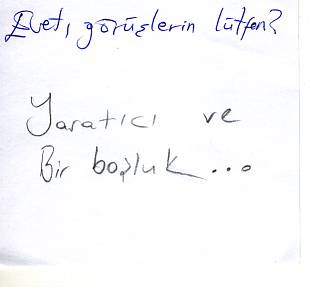 Evet, görüşlerin lütfen?
Yaratıcı ve
Bir boşluk...